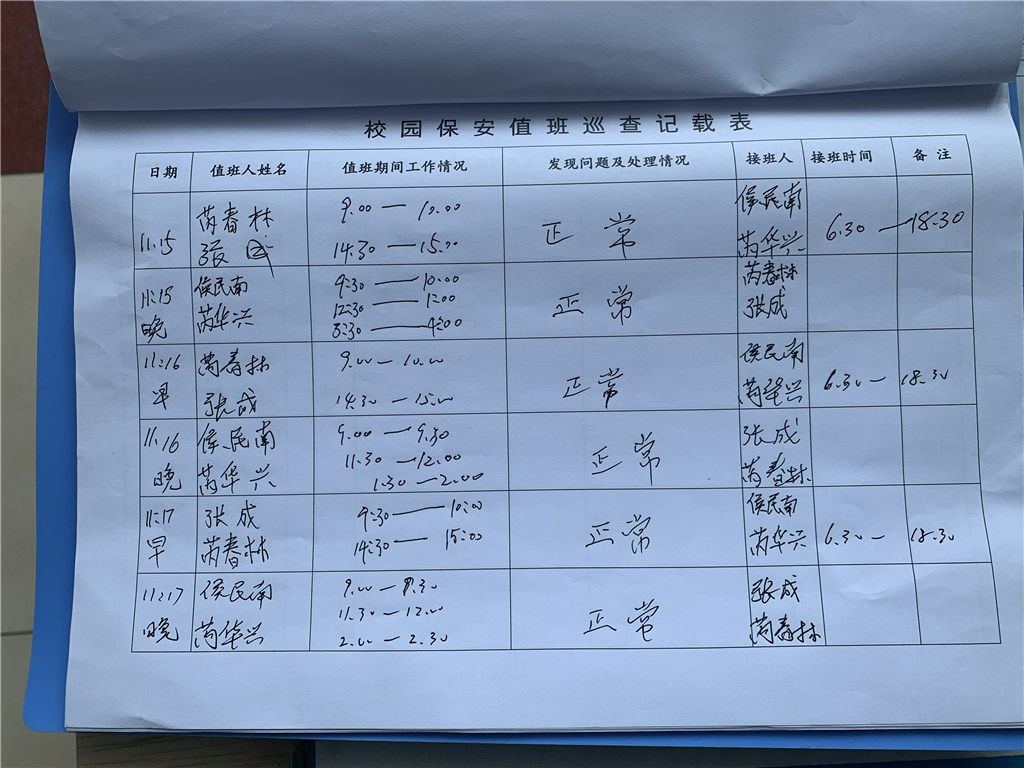 校园保安值班巡查记载表
日期 值班人姓名 值班期间工作情况 发现问题及处理情况 接班人 接班时间 备注
11.15 芮春林 张成 9.00—10.00 14:30—15.00 正常 侯民南 芮华兴 6.30—18:30
11:15 晚 侯民南 芮华兴 9:30—10:00 12:30—1:00 3:30—4:00 正常 芮春林 张成
11:16 早 芮春林 张成 9.00—10.00 14:30—15.00 正常 侯民南 芮华兴 6.30—18.30
11.16 晚 侯民南 芮华兴 9.00—9.30 11.30—12.00 1.30—2.00 正常 张成 芮春林
11:17 早 张成 芮春林 9:30—10:00 14:30—15:00 正常 侯民南 芮华兴 6.30—18.30
11:17 晚 侯民南 芮华兴 9.00—9.30 11.30—12.00 2.00—2.30 正常 张成 芮春林